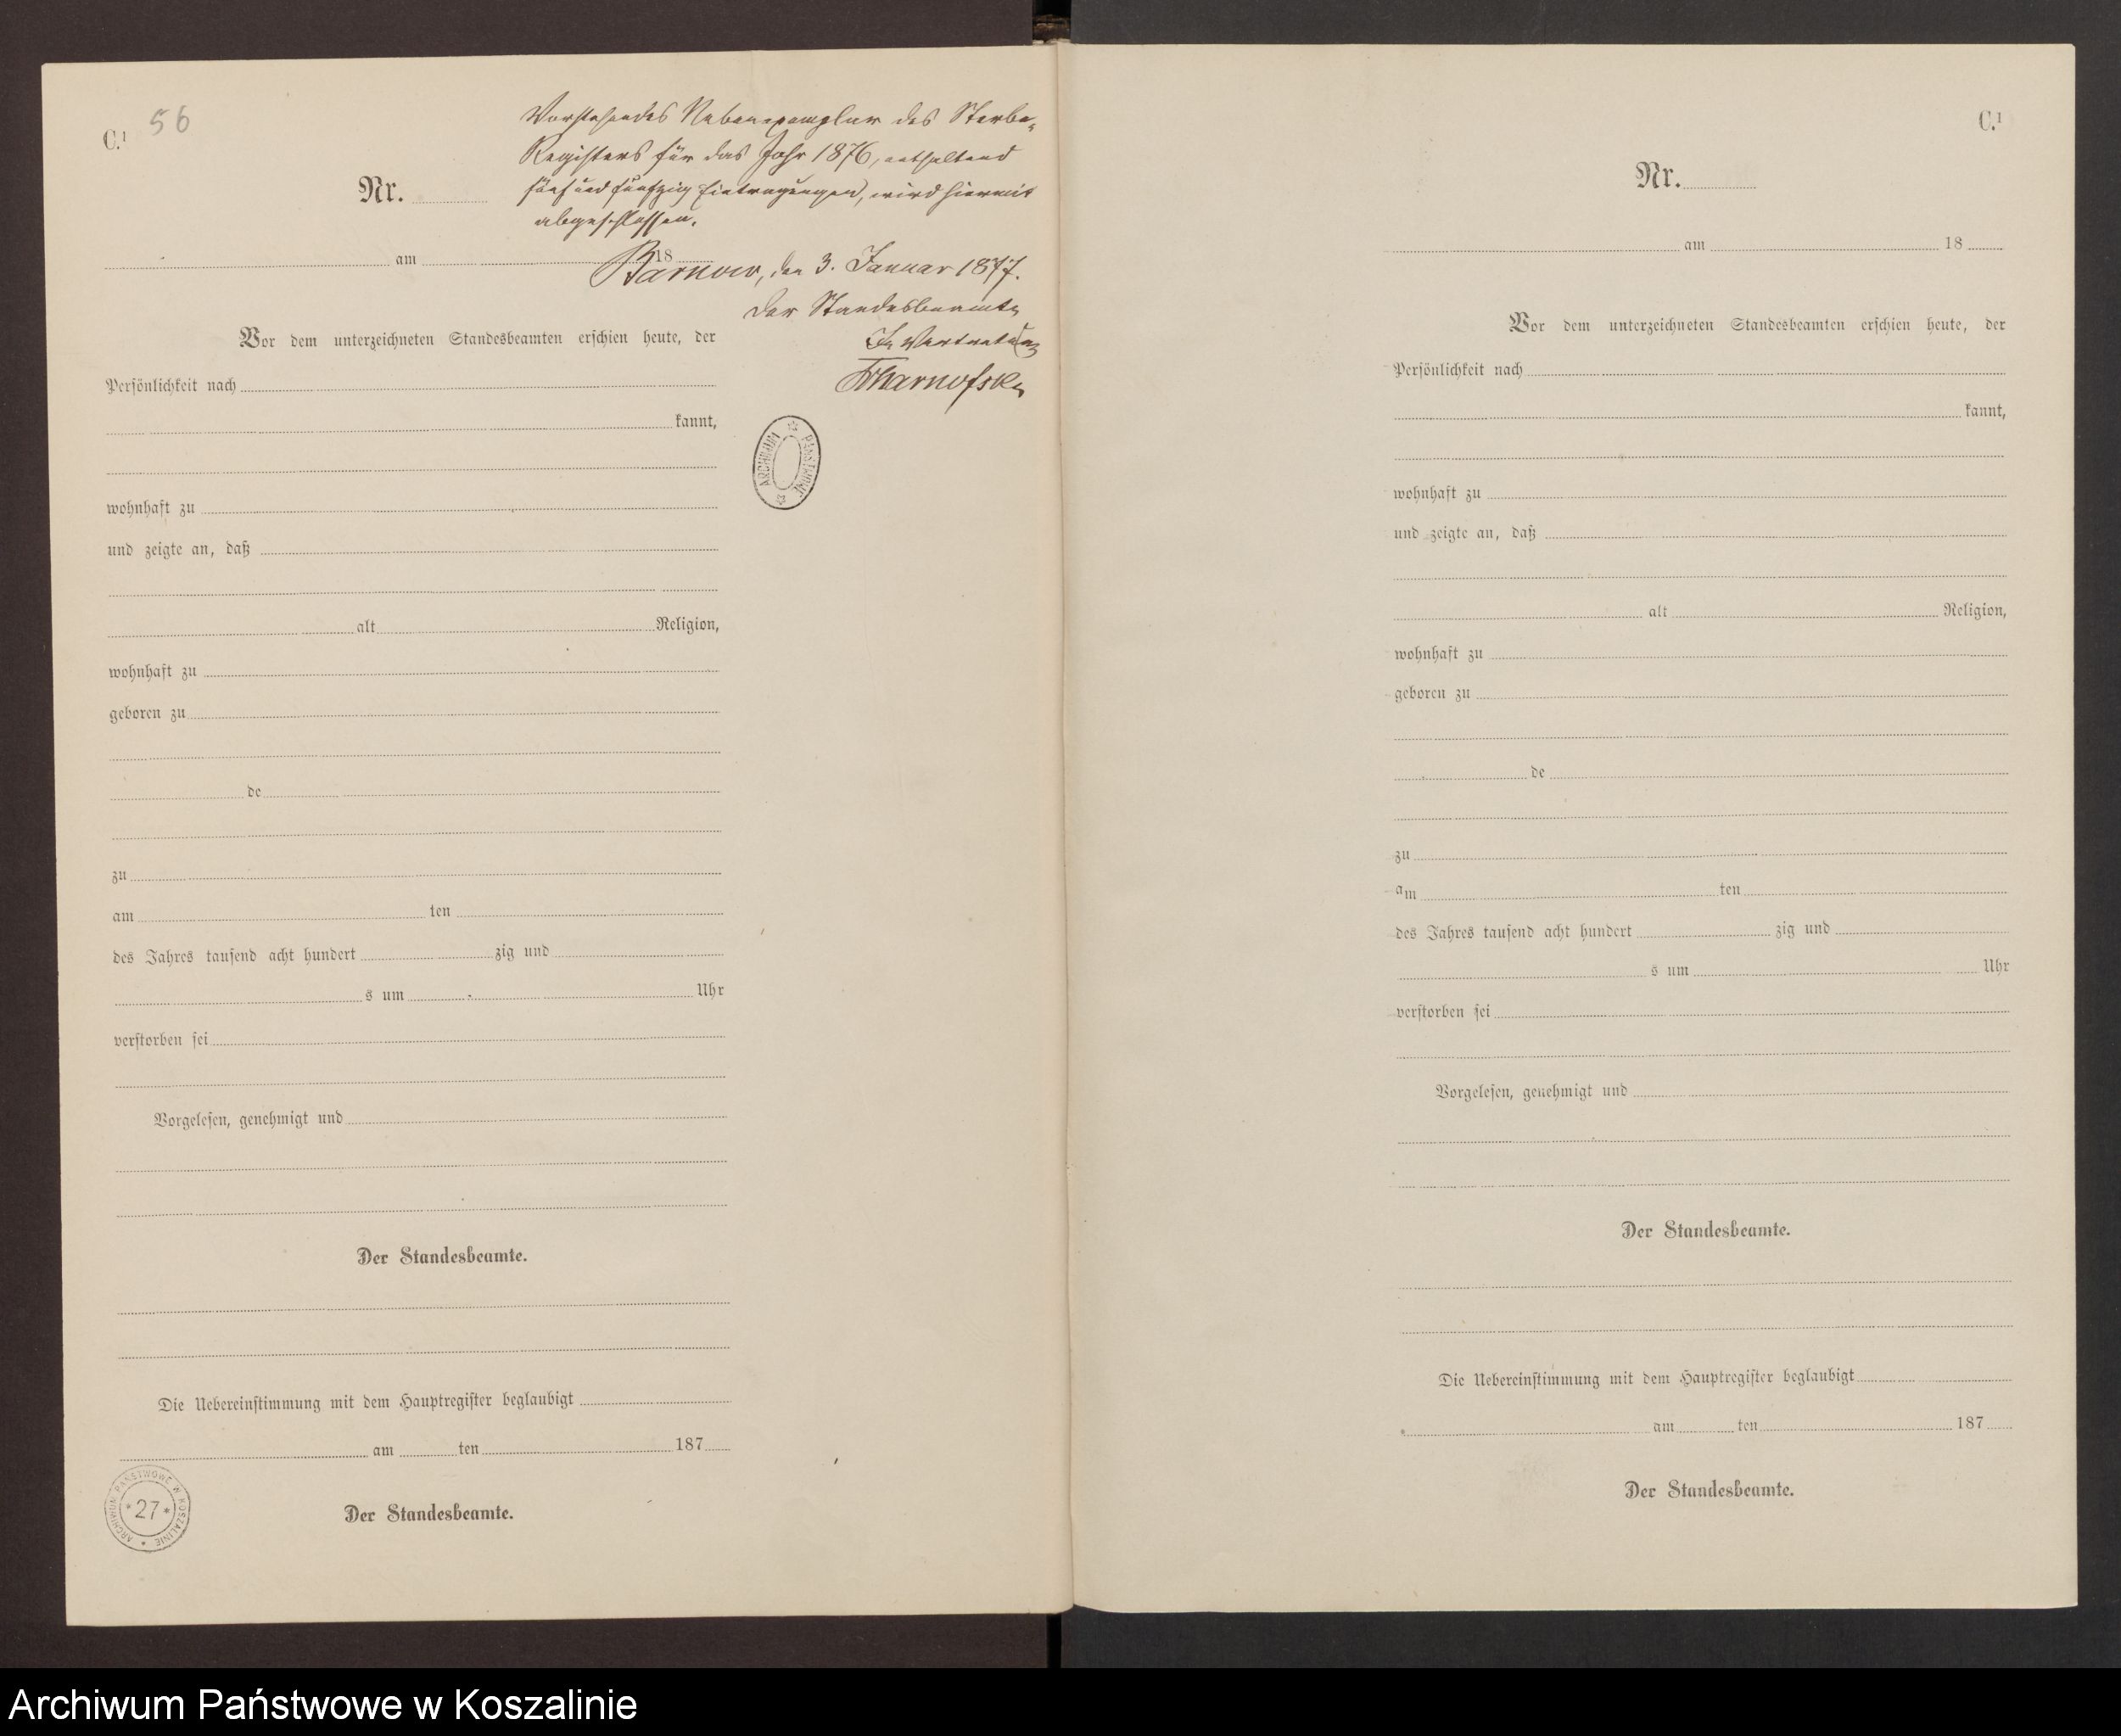 C.1
56
Vorstehendes Nebenexemplar des Sterbe-
Registers für das Jahr 1876, enthaltend
fünf und fünfzig Eintragungen, wird hiermit
abgeschlossen.
Nr.
am 18
Barnow, den 3. Januar 1877.
Der Standesbeamte
In Vertretung
Vor dem unterzeichneten Standesbeamten erschien heute, der
Persönlichkeit nach
kannt,
ARCHIWUM PAŃSTWOWE
wohnhaft zu
und zeigte an, daß
alt Religion,
wohnhaft zu
geboren zu
de
zu
am ten
des Jahres tausend acht hundert zig und
s um Uhr
verstorben sei
Vorgelesen, genehmigt und
Der Standesbeamte.
Die Uebereinstimmung mit dem Hauptregister beglaubigt
am ten 187
Der Standesbeamte.
ARCHIWUM PAŃSTWOWE W KOSZALINIE
*27*
C.1
Nr.
am 18
Vor dem unterzeichneten Standesbeamten erschien heute, der
Persönlichkeit nach
kannt,
wohnhaft zu
und zeigte an, daß
alt Religion,
wohnhaft zu
geboren zu
de
zu
am ten
des Jahres tausend acht hundert zig und
s um Uhr
verstorben sei
Vorgelesen, genehmigt und
Der Standesbeamte.
Die Uebereinstimmung mit dem Hauptregister beglaubigt
am ten 187
Der Standesbeamte.
Archiwum Państwowe w Koszalinie